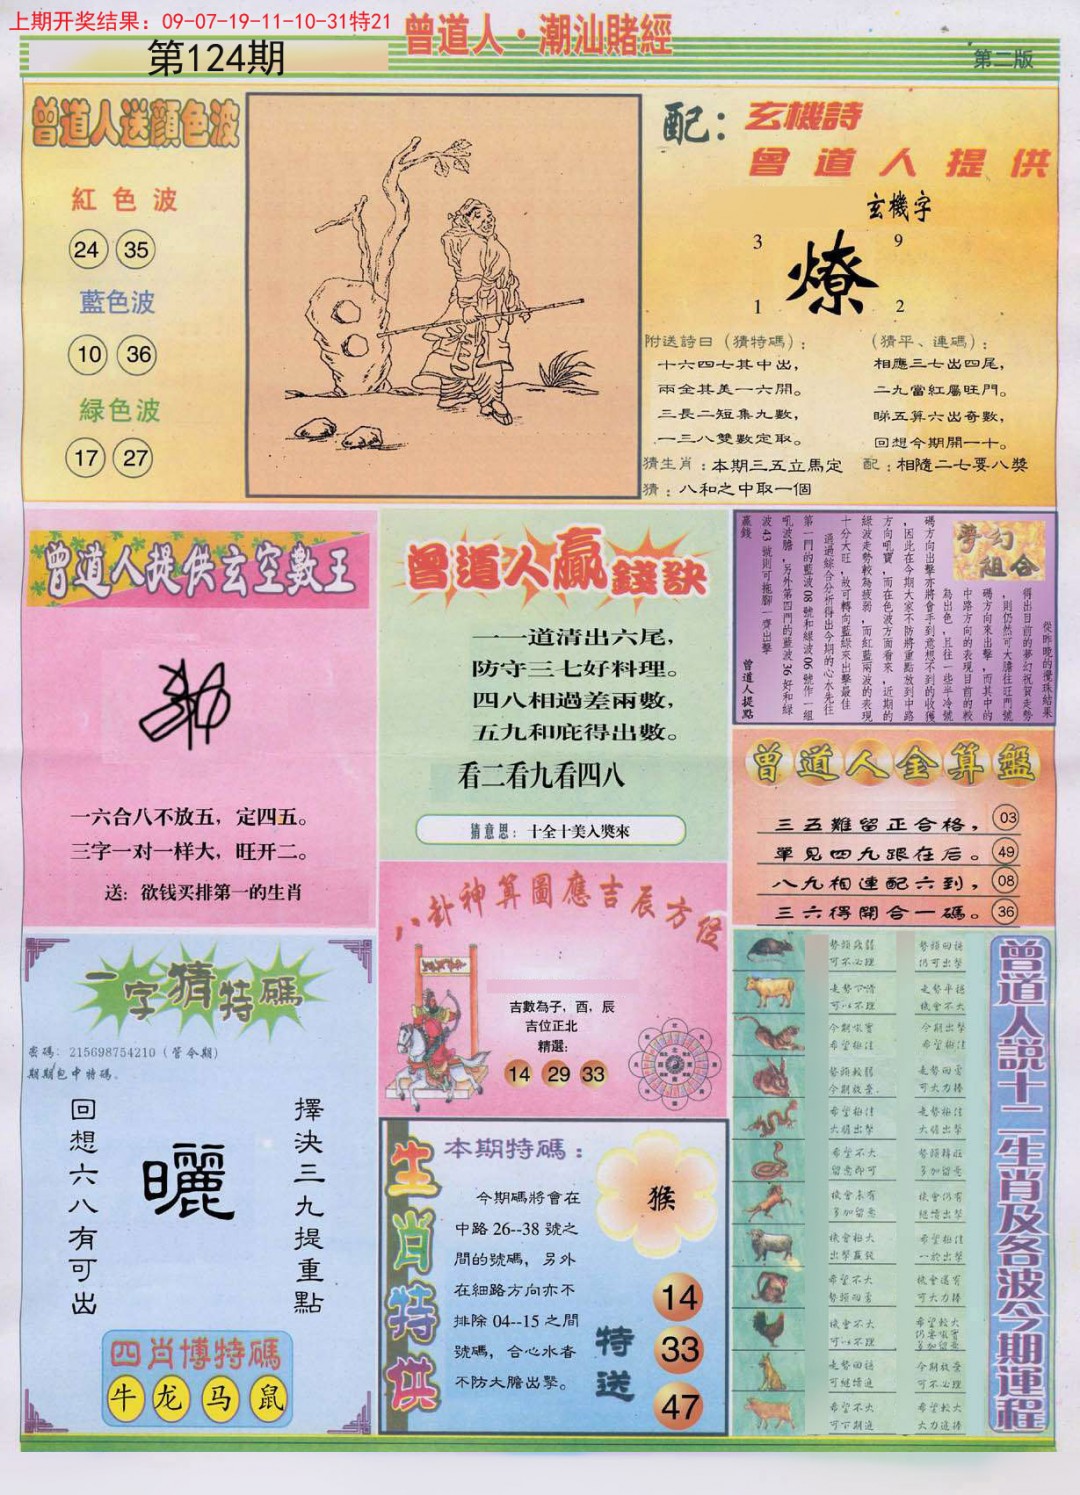 上期开奖结果：09-07-19-11-10-31特21
曾道人·潮汕賭經
第124期
第二版
曾道人送顔色波
紅色波
24 35
藍色波
10 36
緑色波
17 27
配：玄機詩
曾道人提供
玄機字
3 9
燎
1 2
附送詩曰（猜特碼）：
十六四七其中出，
兩全其美一六開。
三長二短集九數，
一三八雙數定取。
（猜平、連碼）：
相應三七出四尾，
二九當紅屬旺門。
睇五算六出奇數，
回想今期開一十。
猜生肖：本期三五立馬定
配：相隨二七要八獎
猜：八和之中取一個
曾道人提供玄空數王
一六合八不放五，定四五。
三字一对一样大，旺开二。
送：欲钱买排第一的生肖
曾道人贏錢訣
一一道清出六尾，
防守三七好料理。
四八相過差兩數，
五九和庇得出數。
看二看九看四八
猜意思：十全十美入獎來
夢幻
組合
從昨晚的攪珠結果
得出目前的夢幻祝賀走勢
，則仍然可大膽往旺門號
碼方向來出擊，而其中的
中路方向的表現目前的較
為出色，且往一些半冷號
碼方向出擊亦將會手到意想不到的收獲
，因此在今期大家不防將重點放到中路
方向吼實，而在色波方面看來，近期的
綠波走勢較為疲弱，而紅藍兩波的表現
十分大旺，故可轉向藍綠來出擊最佳
通過綜合分析得出今期的心水先往
第一門的藍波08號和綠波06號作一組
吼波膽，另外第四門的藍波36好和綠
波43號則可拖腳一齊出擊
贏錢
曾道人提點
曾道人金算盤
三五難留正合格， 03
單見四九跟在后。 49
八九相連配六到， 08
三六得開合一碼。 36
八卦神算圖應吉辰方位
吉數為子，酉，辰
吉位正北
精選：
14 29 33
一字猜特碼
密碼：215698754210（管令期）
期期包中特碼。
擇決三九提重點
曬
回想六八有可出
四肖博特碼
牛 龙 马 鼠
生肖特供
本期特碼：
今期碼將會在
中路26--38號之
間的號碼，另外
在細路方向亦不
排除04--15之間
號碼，合心水者
不防大膽出擊。
猴
特送
14
33
47
曾道人說十二生肖及各波今期運程